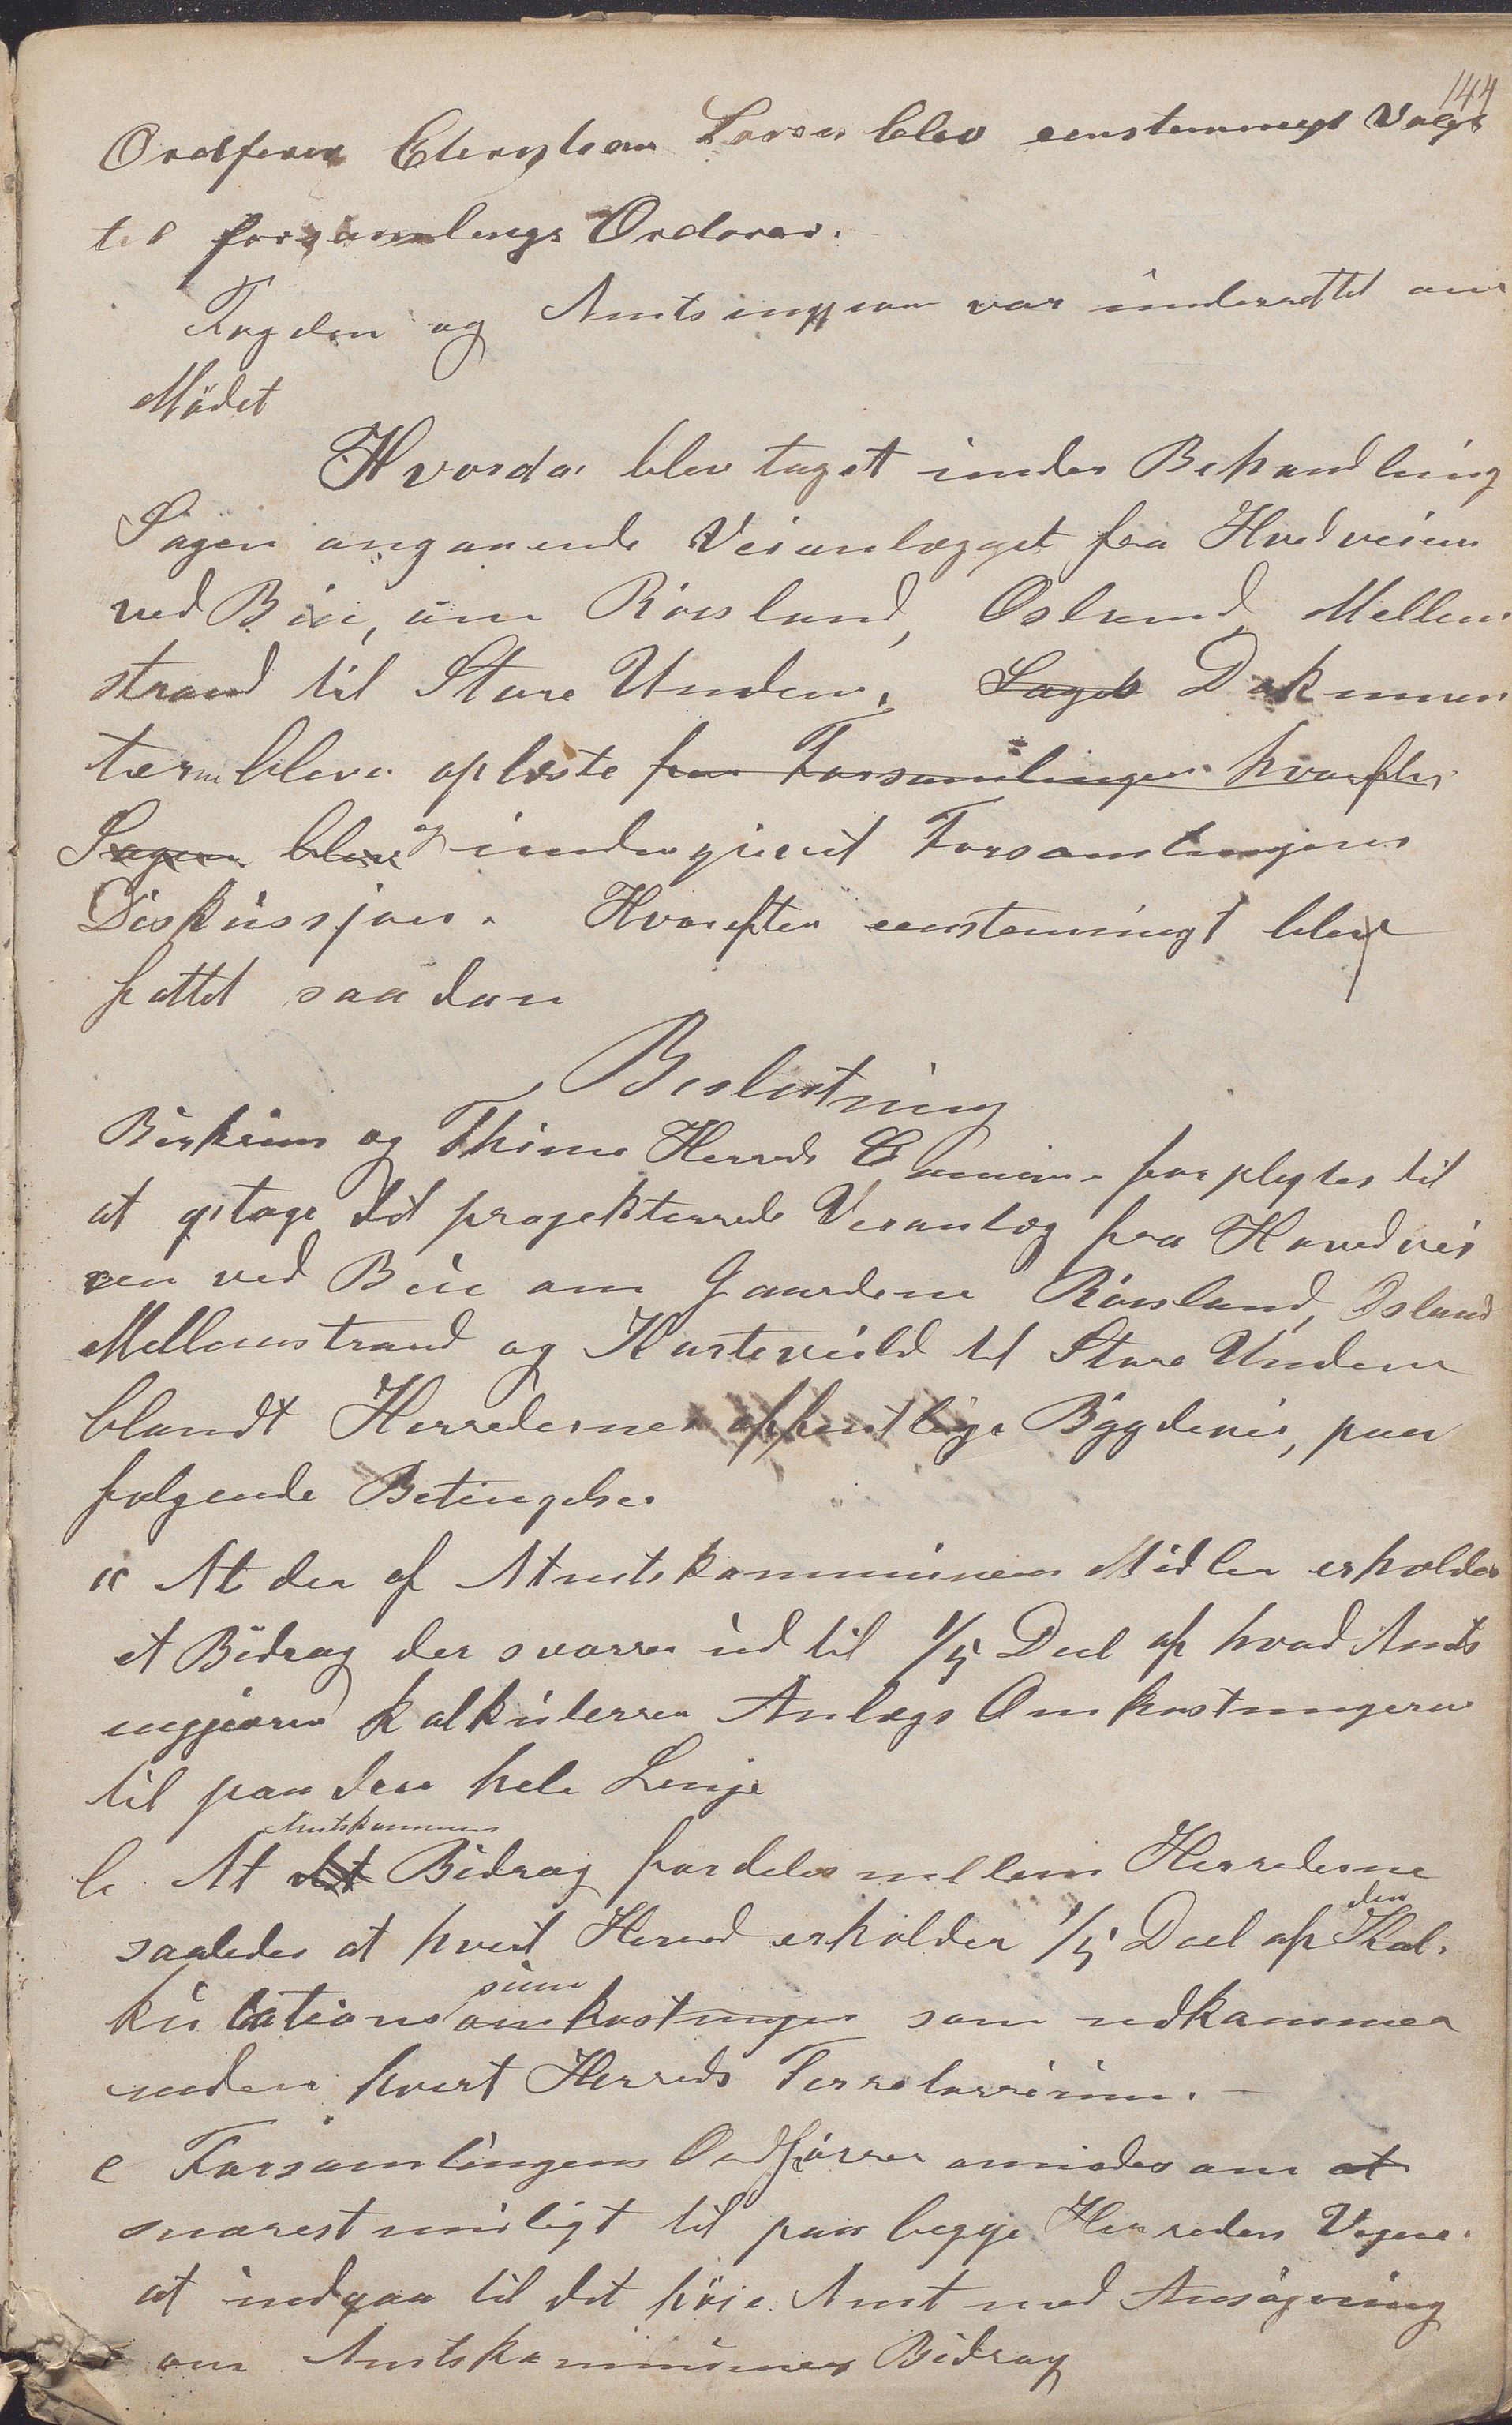 144
Ordfører Larsen blev eenstemmigt Valgt
til forsamlings Ordører.
Fogden og Amtsingjøren var underrettet om
Mödet
Hvorda blev taget under Behandling
Sagen angaaende Veianlægget fra Hovdveien
ved Bue, om Røisland, Osland Mellem
strand til Store Undem. Saget Dokumen
tærne bleve oplæste for Forsamlingen hvorefter
Sagen blev og undergivet Forsamlingens
Diskussjon. Hvorefter eenstemmigt blev
fattet saadan
Beslutning
Birkrem og Thime Herreds Commune forplegtes til
at optage det projekterede Veianlæg fra Hovedvei
en ved Bue om Gaardene Røisland, Osland
Mellemstrand og til Store Undem
blandt Herredernes offentlige Bygdevei, paa
følgende Betingelser
a At der af Amtskommunens Midler erholdes
et Bidrag der svarer ud til 1/5 Deel af hvad Amts
ingjøren kalkulerer Anlægs Omkostningerne
til paa den hele Linje
b. At det Amtskommunens Bidrag fordeles mellem Herrederne
saaledes at hvert Herred erholder 1/5 Deel af den Kal-
kulations sum omkostninger som udkommer
inden hvert Herreds Terretorrium. —
c Forsamlingens Ordförer anmodes om at
snarest muligt til paa begge Herreders Vegne
at indgaa til det höie Amt med Ansögning
om Amtskommunens Bidrag